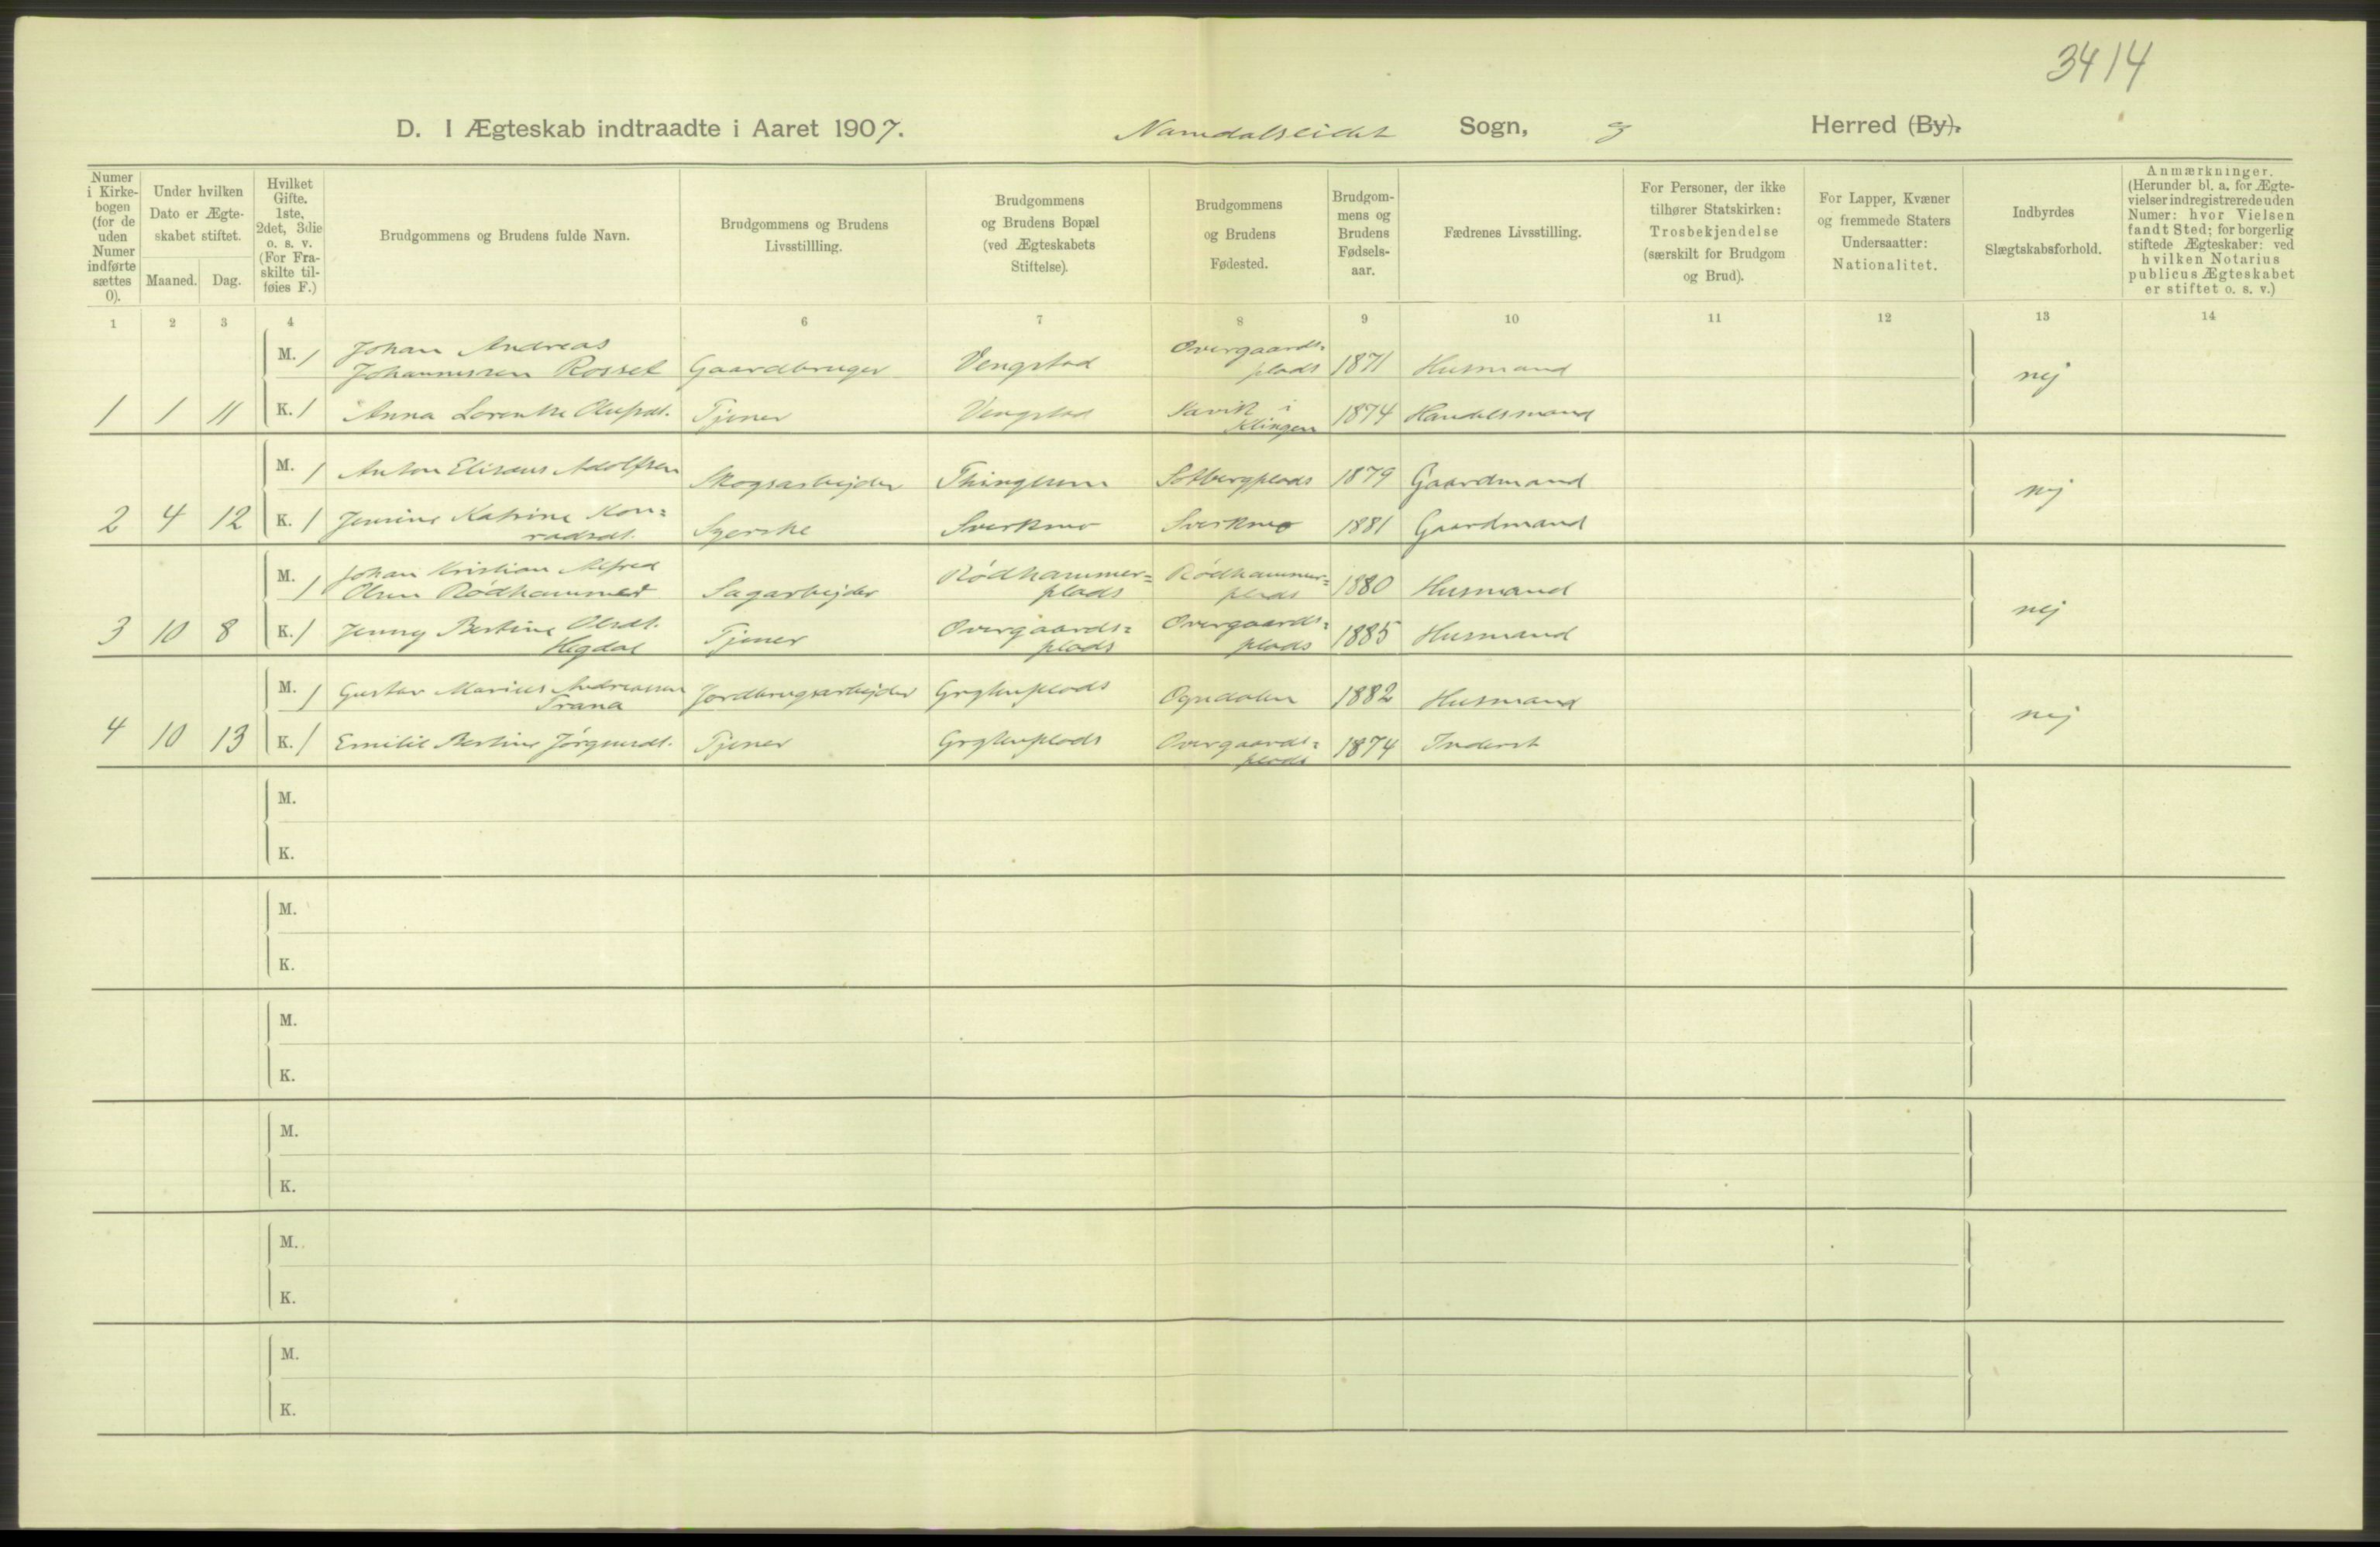 3414
D. I Ægteskab indtraadte i Aaret 1907. Namdalseidet Sogn, Herred (By).
Numer i Kirkebogen (for de uden Numer indførte sættes 0).
Under hvilken Dato er Ægteskabet stiftet.
Maaned. Dag.
Hvilket Gifte. 1ste, 2det, 3die o. s. v. (For Fraskilte tilføies F.)
Brudgommens og Brudens fulde Navn.
Brudgommens og Brudens Livsstillling.
Brudgommens og Brudens Bopæl (ved Ægteskabets Stiftelse).
Brudgommens og Brudens Fødested.
Brudgommens og Brudens Fødselsaar.
Fædrenes Livsstilling.
For Personer, der ikke tilhører Statskirken: Trosbekjendelse (særskilt for Brudgom og Brud).
For Lapper, Kvæner og fremmede Staters Undersaatter: Nationalitet.
Indbyrdes Slægtskabsforhold.
Anmærkninger. (Herunder bl. a. for Ægtevielser indregistrerede uden Numer: hvor Vielsen fandt Sted; for borgerlig stiftede Ægteskaber: ved hvilken Notarius publicus Ægteskabet er stiftet o. s. v.)
1 2 3 4 6 7 8 9 10 11 12 13 14
M. 1 Johan Andreas Johannessen Rosset Gaardbruger Vengstad Overgaards=plads 1871 Husmand nej
1 1 11 K. 1 Anna Lorentze Olufsdt. Tjener Vengstad Savik i Klingen 1874 Handelsmand
M. 1 Anton Elisæus Adolfsen Skogsarbejder Thinglum Solbergplads 1879 Gaardmand nej
2 4 12 K. 1 Jensine Katrine Kon=radsdt. Syerske Sverkmo Sverkmo 1881 Gaardmand
M. 1 Johan Kristian Alfred Olsen Rødhammer Sagarbejder Rødhammer=plads Rødhammer=plads 1880 Husmand nej
3 10 8 K. 1 Jenny Bertine Olsdt. Hegdal Tjener Overgaards=plads Overgaards=plads 1885 Husmand
M. 1 Gustav Marius Andreassen Trana Jordbrugsarbejder Grytenplads Ogndalen 1882 Husmand nej
4 10 13 K. 1 Emilie Bertine Jørgensdt. Tjener Grytenplads Overgaards=plads 1874 Inderst
M.
K.
M.
K.
M.
K.
M.
K.
M.
K.
M.
K.